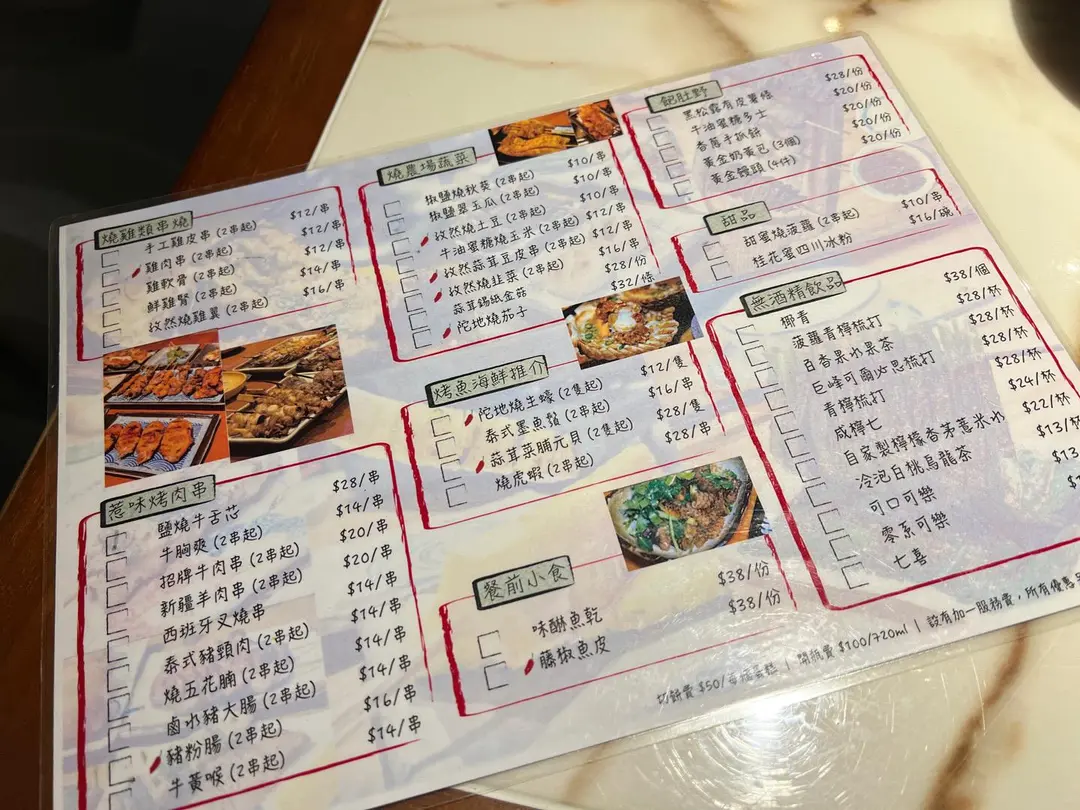 燒雞類串燒
手工雞皮串 (2串起) $12/串
雞肉串 (2串起) $12/串
雞軟骨 (2串起) $12/串
鮮雞腎 (2串起) $14/串
孜然燒雞翼 (2串起) $16/串
惹味烤肉串
鹽燒牛舌芯 $28/串
牛胸爽 (2串起) $14/串
招牌牛肉串 (2串起) $20/串
新疆羊肉串 (2串起) $20/串
西班牙叉燒串 $14/串
泰式豬頸肉 (2串起) $14/串
燒五花腩 (2串起) $14/串
鹵水豬大腸 (2串起) $14/串
豬粉腸 (2串起) $16/串
牛黃喉 (2串起) $14/串
燒農場蔬菜
椒鹽燒秋葵 (2串起) $10/串
椒鹽翠玉瓜 (2串起) $10/串
孜然燒土豆 (2串起) $10/串
牛油蜜糖燒玉米 (2串起) $12/串
孜然蒜茸豆皮串 (2串起) $12/串
孜然燒韭菜 (2串起) $16/串
蒜茸錫紙金菇 $28/份
陀地燒茄子 $32/條
烤魚海鮮推介
陀地燒生蠔 (2隻起) $12/隻
泰式墨魚鬚 (2串起) $16/串
蒜茸菜脯元貝 (2隻起) $28/隻
燒虎蝦 (2串起) $28/串
餐前小食
味醂魚乾 $38/份
藤椒魚皮 $38/份
飽肚野
黑松露有皮薯條 $28/份
牛油蜜糖多士 $20/份
香蔥手抓餅 $20/份
黃金奶黃包 (3個) $20/份
黃金饅頭 (4件) $20/份
甜品
甜蜜燒菠蘿 (2串起) $10/串
桂花蜜四川冰粉 $16/碗
無酒精飲品
椰青 $38/個
菠蘿青檸梳打 $28/杯
百香果水果茶 $28/杯
巨峰可爾必思梳打 $28/杯
青檸梳打 $28/杯
咸檸七 $24/杯
自家製檸檬香茅薏米水 $22/杯
冷泡白桃烏龍茶 $13/杯
可口可樂 $13
零系可樂
七喜
切餅費 $50/每個蛋糕 | 開瓶費 $100/720ml | 設有加一服務費,所有優惠